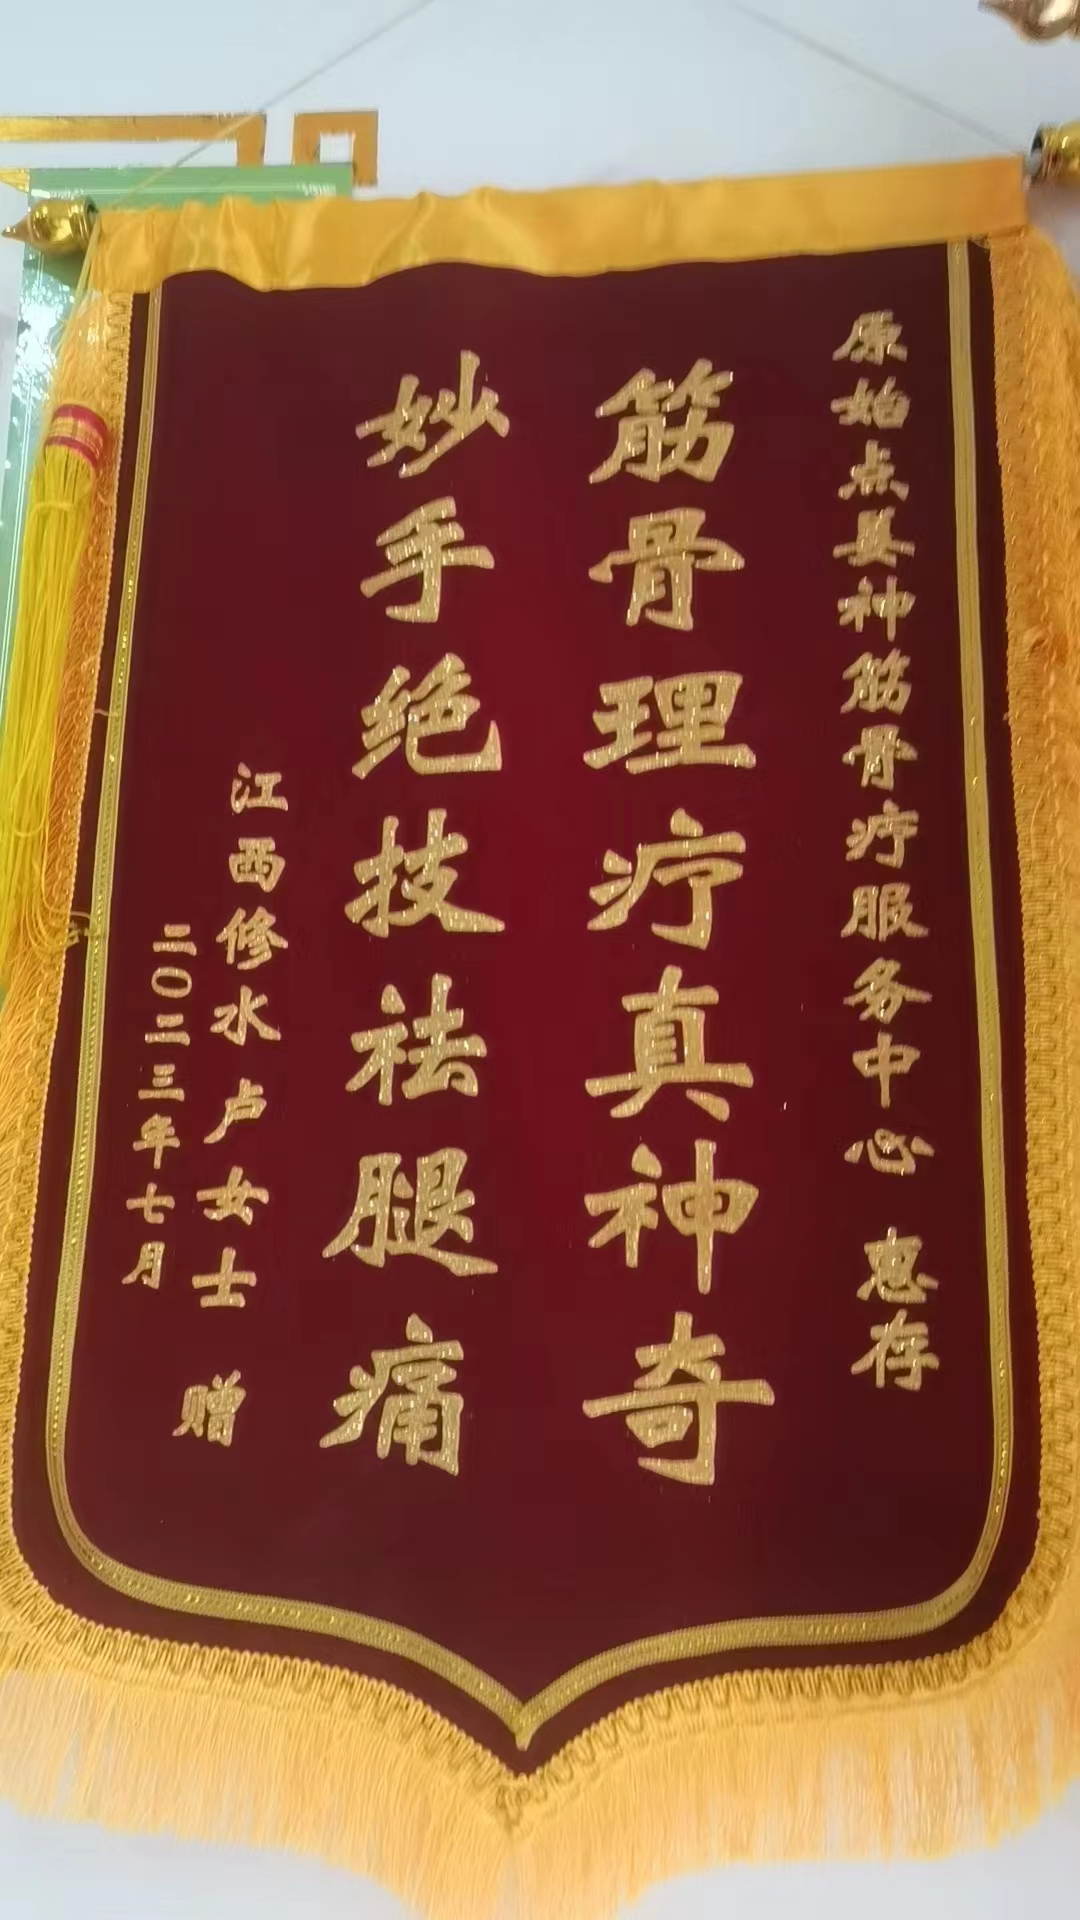 原始点姜神筋骨疗服务中心 惠存
筋骨理疗真神奇
妙手绝技祛腿痛
江西修水卢女士 赠
二〇二三年七月